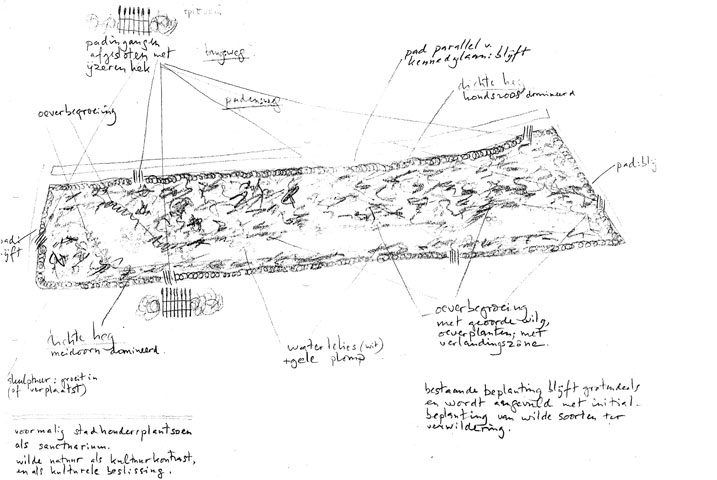 padingangen
afgesloten met
ijzeren hek
langsweg
padenweg
pad parallel v.
kennedylaan: blijft
dichte heg
hondsroos domineerd
oeverbegroeiing
pad: blij
pad:
ijft
dichte heg
meidoorn domineerd.
waterlelies (wit)
+ gele plomp
oeverbegroeing
met geoorde wilg,
oeverplanten; met
verlandingszône.
skulptuur: groeit in
(of verplaatst)
bestaande beplanting blijft grotendeels
en wordt aangevuld met initial-
beplanting van wilde soorten ter
verwildering.
voormalig stadhoudersplantsoen
als sanctuarium.
wilde natuur als kultuurkontrast,
en als kulturele beslissing.